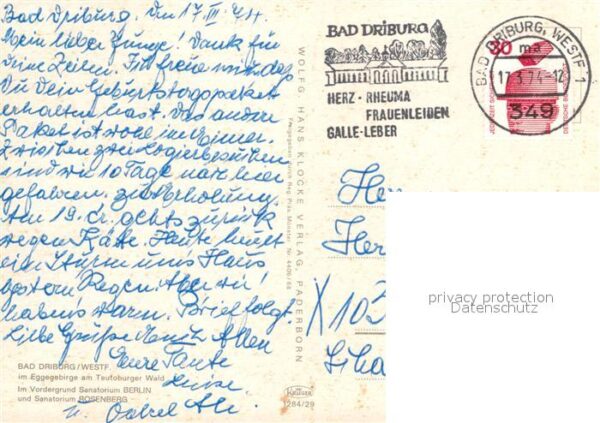 Bad Driburg, den 17. III. 74.
Mein lieber Junge! Dank für
Deine Zeilen. Ich freue mich, daß
Du Dein Geburtstagspaket
erhalten hast. Das andere
Paket ist wohl im Eimer.
Zwischen zwei Logierbesuchen
sind wir 10 Tage nach hier
gefahren. zur Erholung.
Am 19. cr. gehts zurück
wegen Kälte. Heute heult
ein Sturm ums Haus
gestern Regen. Aber wir
habens warm. Brief folgt.
Liebe Grüße Euch Allen
Eure Tante
Luise
u. Onkel
BAD DRIBURG/WESTF.
im Eggegebirge am Teutoburger Wald
Im Vordergrund Sanatorium BERLIN
und Sanatorium ROSENBERG
WOLFG. HANS KLOCKE VERLAG, PADERBORN
Freigegeben durch Reg. Präs. Münster Nr. 4406/68
KRÜGER
1284/29
BAD DRIBURG
HERZ - RHEUMA
FRAUENLEIDEN
GALLE-LEBER
BAD DRIBURG, WESTF 1
ma
17.3.74-12
349
30
JEDERZEIT SICHERHEIT
DEUTSCHE BUNDESPOST
Herr
X 102
privacy protection
Datenschutz